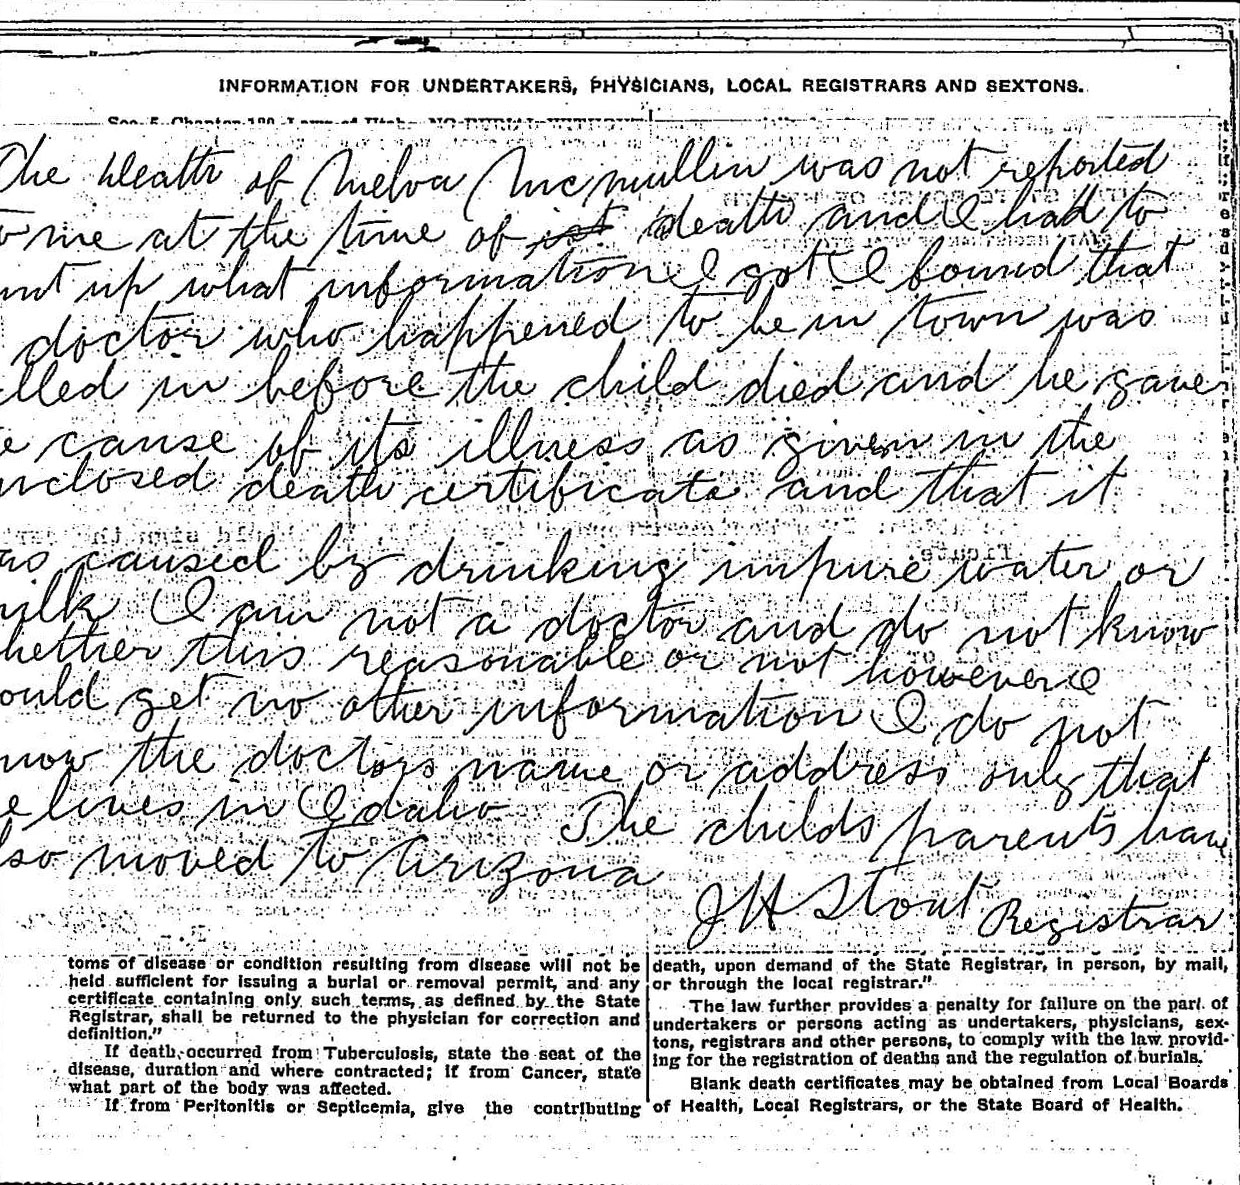 INFORMATION FOR UNDERTAKERS, PHYSICIANS, LOCAL REGISTRARS AND SEXTONS.
The death of Melva McMullin was not reported
to me at the time of its death and I had to
unt up what information I got I found that
doctor who happened to be in town was
lled in before the child died and he gave
e cause of its illness as given in the
nclosed death certificate and that it
as caused by drinking impure water or
ilk I am not a doctor and do not know
hether this reasonable or not however I
ould get no other information I do not
now the doctors name or address only that
e lives in Idaho The childs parents have
lso moved to Arizona
J H Stout Registrar
toms of disease or condition resulting from disease will not be
held sufficient for issuing a burial or removal permit, and any
certificate containing only such terms, as defined by the State
Registrar, shall be returned to the physician for correction and
definition."
If death occurred from Tuberculosis, state the seat of the
disease, duration and where contracted; if from Cancer, state
what part of the body was affected.
If from Peritonitis or Septicemia, give the contributing
death, upon demand of the State Registrar, in person, by mail,
or through the local registrar."
The law further provides a penalty for failure on the part of
undertakers or persons acting as undertakers, physicians, sex-
tons, registrars and other persons, to comply with the law provid-
ing for the registration of deaths and the regulation of burials.
Blank death certificates may be obtained from Local Boards
of Health, Local Registrars, or the State Board of Health.